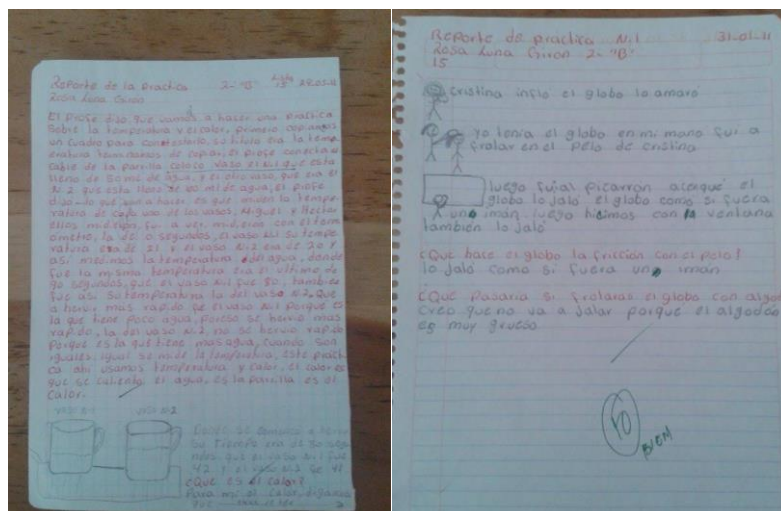 Reporte de la practica 2-"B" Lista 15 28.03.11
Rosa Luna Giron
El profe dijo que vamos a hacer una practica
sobre la temperatura y el calor, primero copiamos
un cuadro para contestarlo, su titulo era la temp
eratura terminamos de copiar, el profe conecto el
cable de la parrilla coloco vaso el N.1 que esta
lleno de 80 ml de agua, y el otro vaso, que era el
N.2 que esta lleno de 100 ml de agua, el profe
dijo lo que van a hacer es que miden la tempe
ratura de cada uno de los vasos, Miguel y Hector
ellos midieron, fui a ver, midieron con el term
ómetro, la de 0 segundos, el vaso N.1 su tempe
ratura era de 21 y el vaso N.2 era de 20 y
asi medimos la temperatura del agua, donde
fue la misma temperatura era el ultimo de
90 segundos, que el vaso N.1 fue 80, tambien
fue asi su temperatura la del vaso N.2, que
a hervir mas rapido fue el vaso N.1 porque es
la que tiene poco agua, poreso se hervio mas
rapido, la del vaso N.2, no se hervio rapido
porque es la que tiene mas agua, cuando son
iguales, igual se mide la temperatura, este practi
ca ahi usamos temperatura y calor, el calor es
que se calienta el agua, es la parrilla es el
calor.
vaso N.1 vaso N.2
Donde se empieza a hervir
su tiempo era de 30 segu
ndos, que el vaso N.1 fue
42 y el vaso N.2 fue 41
¿Que es el calor?
Para mi el calor
Reporte de practica N.1 31-01-11
Rosa Luna Giron 2-"B"
15
Cristina inflo el globo lo amaro
yo tenia el globo en mi mano fui a
frotar en el pelo de cristina
luego fui al picarron acerqué el
globo lo jaló el globo como si fuera
un imán luego hicimos con la ventana
también lo jaló
¿Que hace el globo la fricción con el pelo?
lo jaló como si fuera un imán
¿Qué pasaria si frotaras el globo con algo
creo que no va a jalar porque el algodón
es muy grueso
10
BIEN